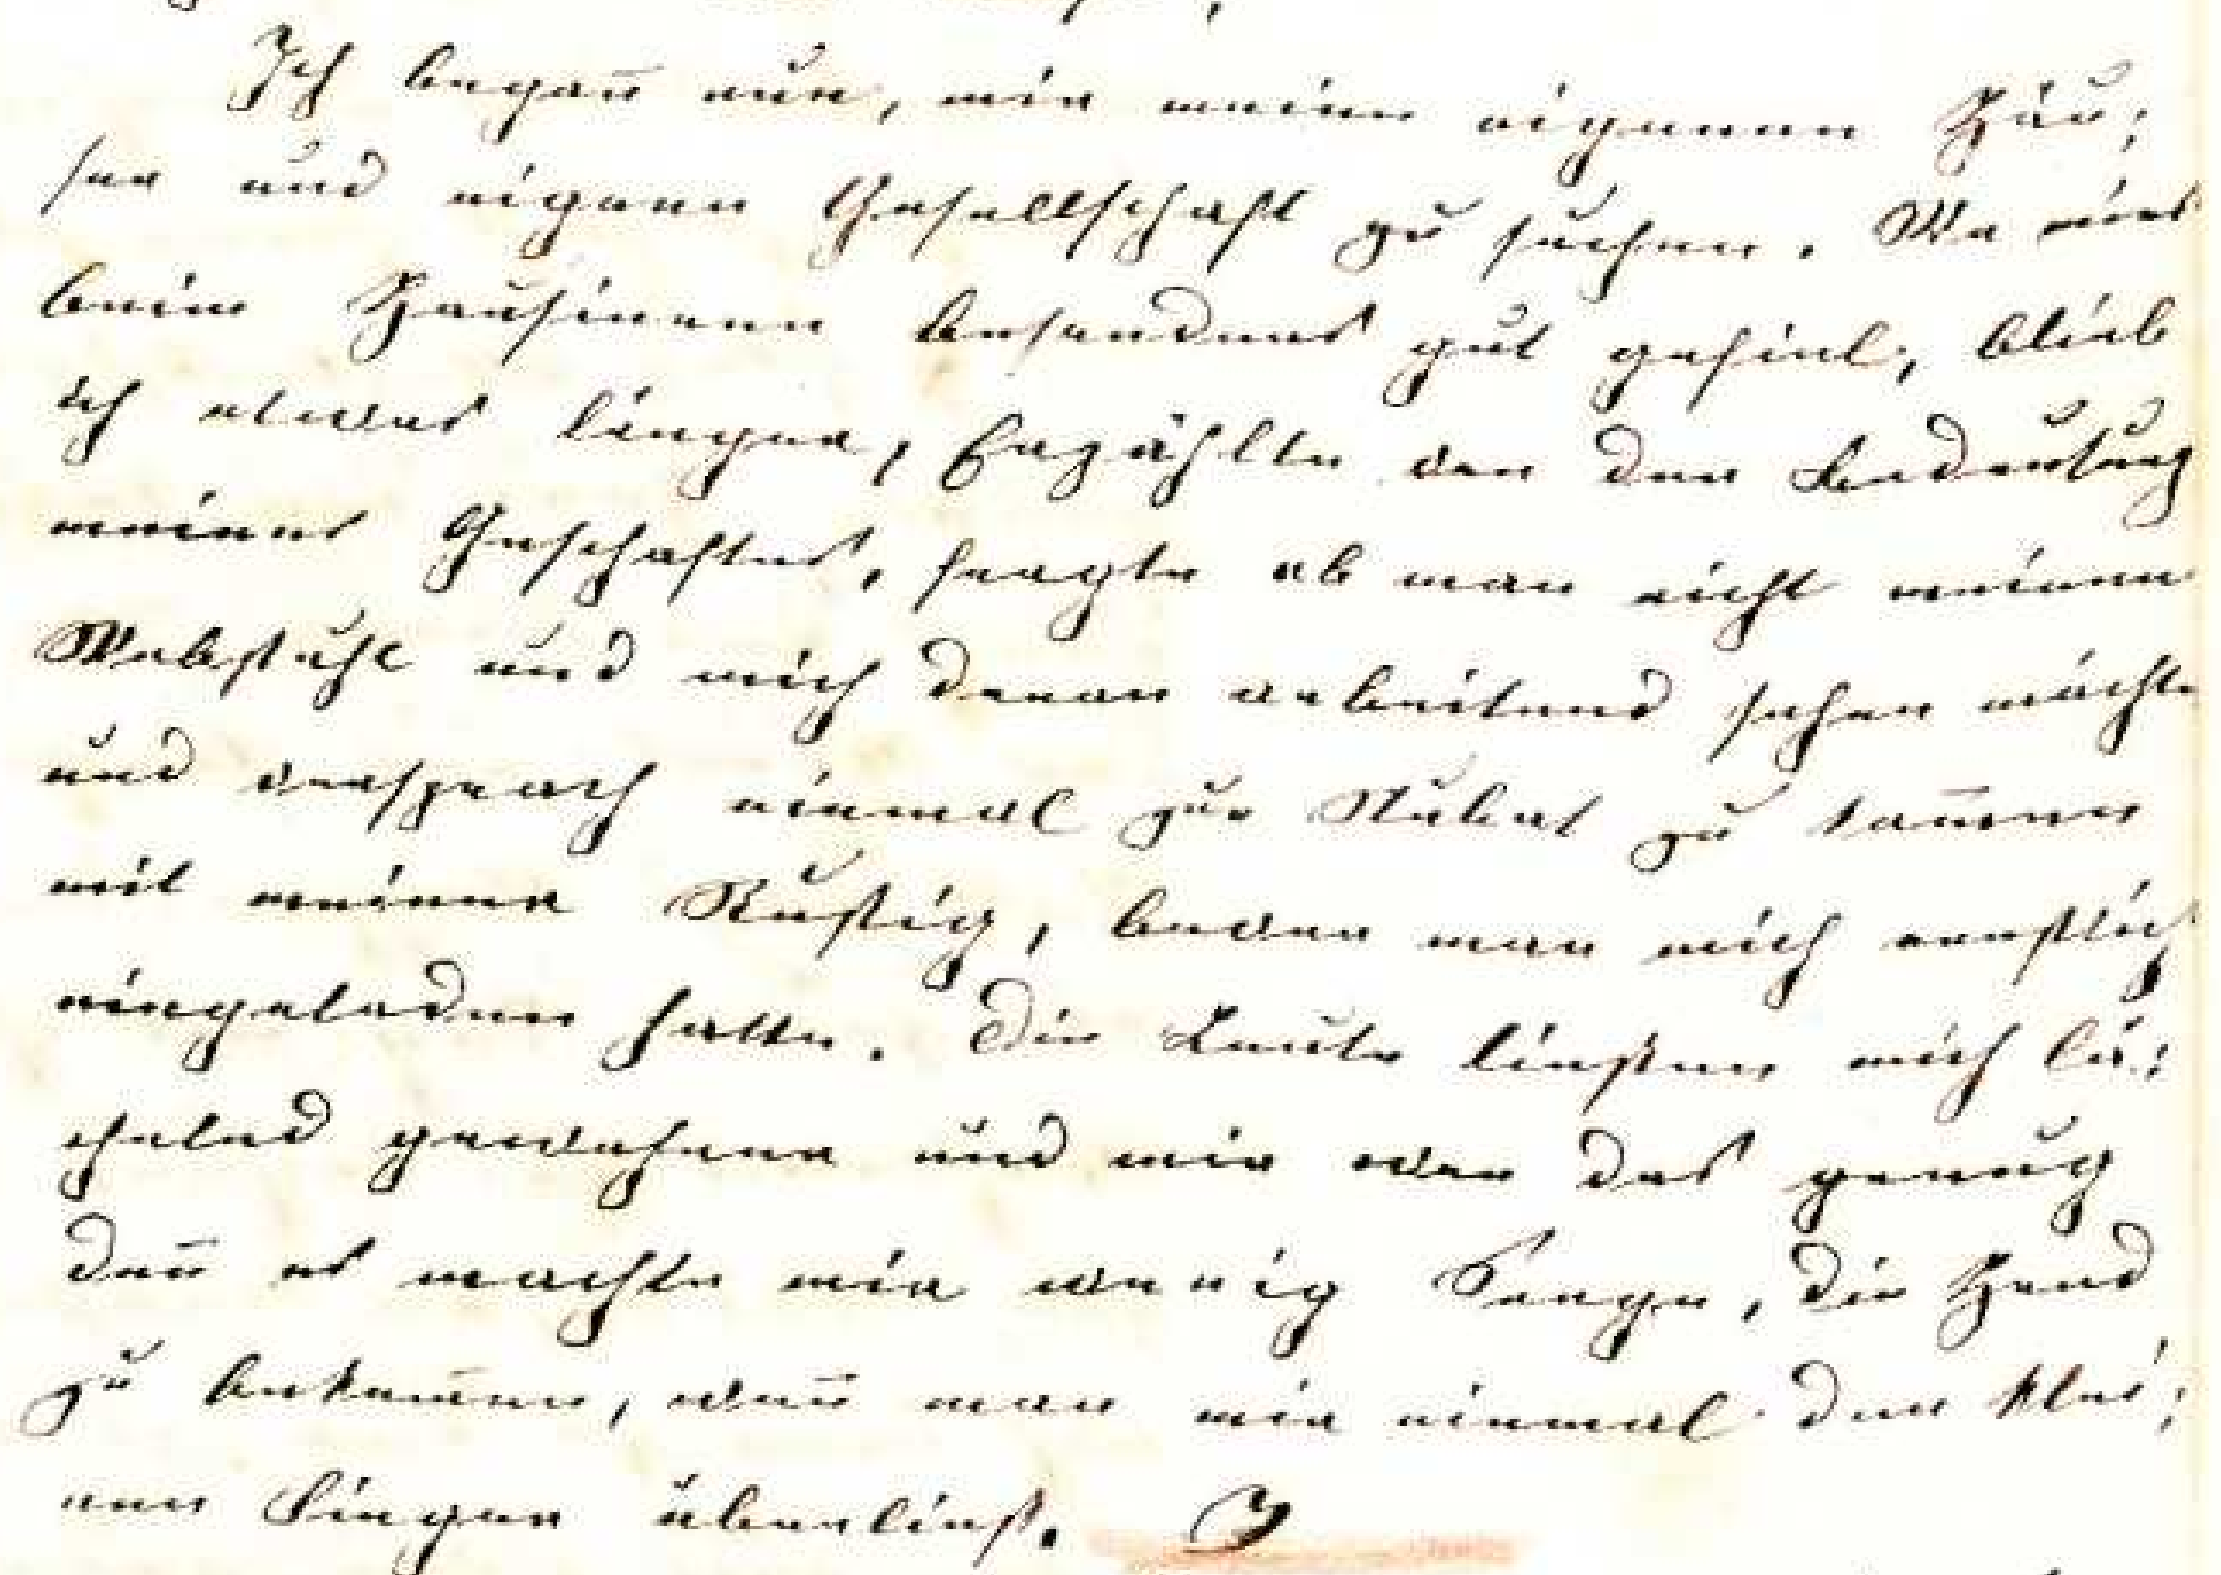 Ich begañ nun, mir meine eigenen Häu:
ser und eigene Gesellschaft zu suchen. Wo mirs
beim Hausirenn besonders gut gefiel, blieb
ich etwas länger, erzählte von der Bedeutung
meines Geschaftes, fragte ob man nicht meinen
Webstuhl und mich daran arbeitend sehen möchte
und versprach einmal zur Stubat zu kom̄en
mit meiner Rustig, bevor man mich ernstlich
eingeladen hatte. Die Leute ließen mich lä:
chelnd gewähren und mir war das genug
deñ es machte mir wenig Sorge, die Hand
zu bekom̄en, weñ man mir einmal den klei:
nen Finger überließ.